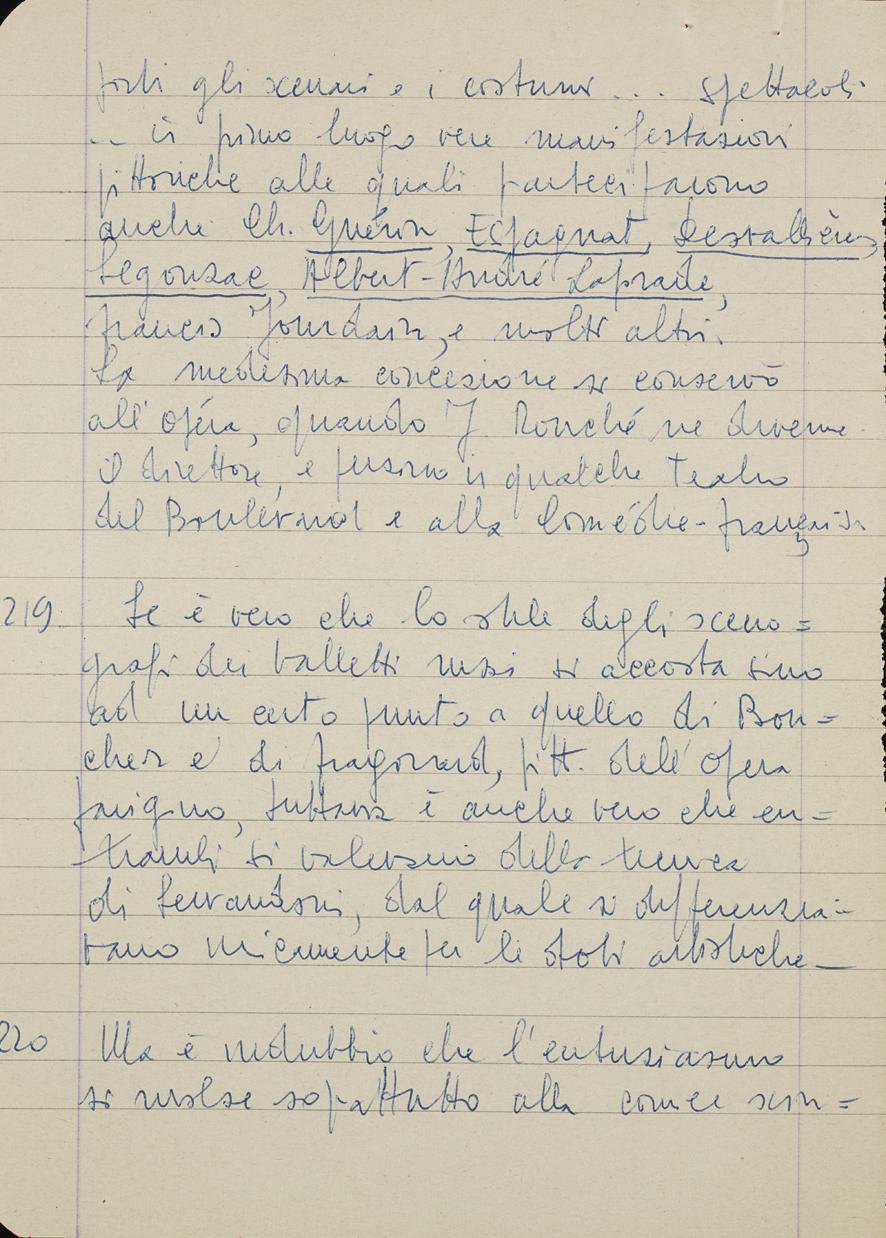 forti gli scenari e i costumi ... spettacoli
... in primo luogo vere manifestazioni
pittoriche alle quali parteciparono
anche Ch. Guérin, Espagnat, Desvallières,
Segonzac, Albert-André Laprade,
Francis Jourdain, e molti altri.
La medesima concezione si conservò
all'Opéra, quando J. Rouché ne divenne
il direttore, e persino in qualche Teatro
del Boulevard e alla Comédie-française
219. Se è vero che lo stile degli sceno=
grafi dei balletti russi si accosta sino
ad un certo punto a quello di Bou=
cher e di Fragonard, pitt. dell'Opera
parigina, tuttavia è anche vero che en=
trambi si valevano della tecnica
di Servandoni, dal quale si differenzia=
vano unicamente per le doti artistiche_
220 Ma è indubbio che l'entusiasmo
si volse soprattutto alla cornice scen=